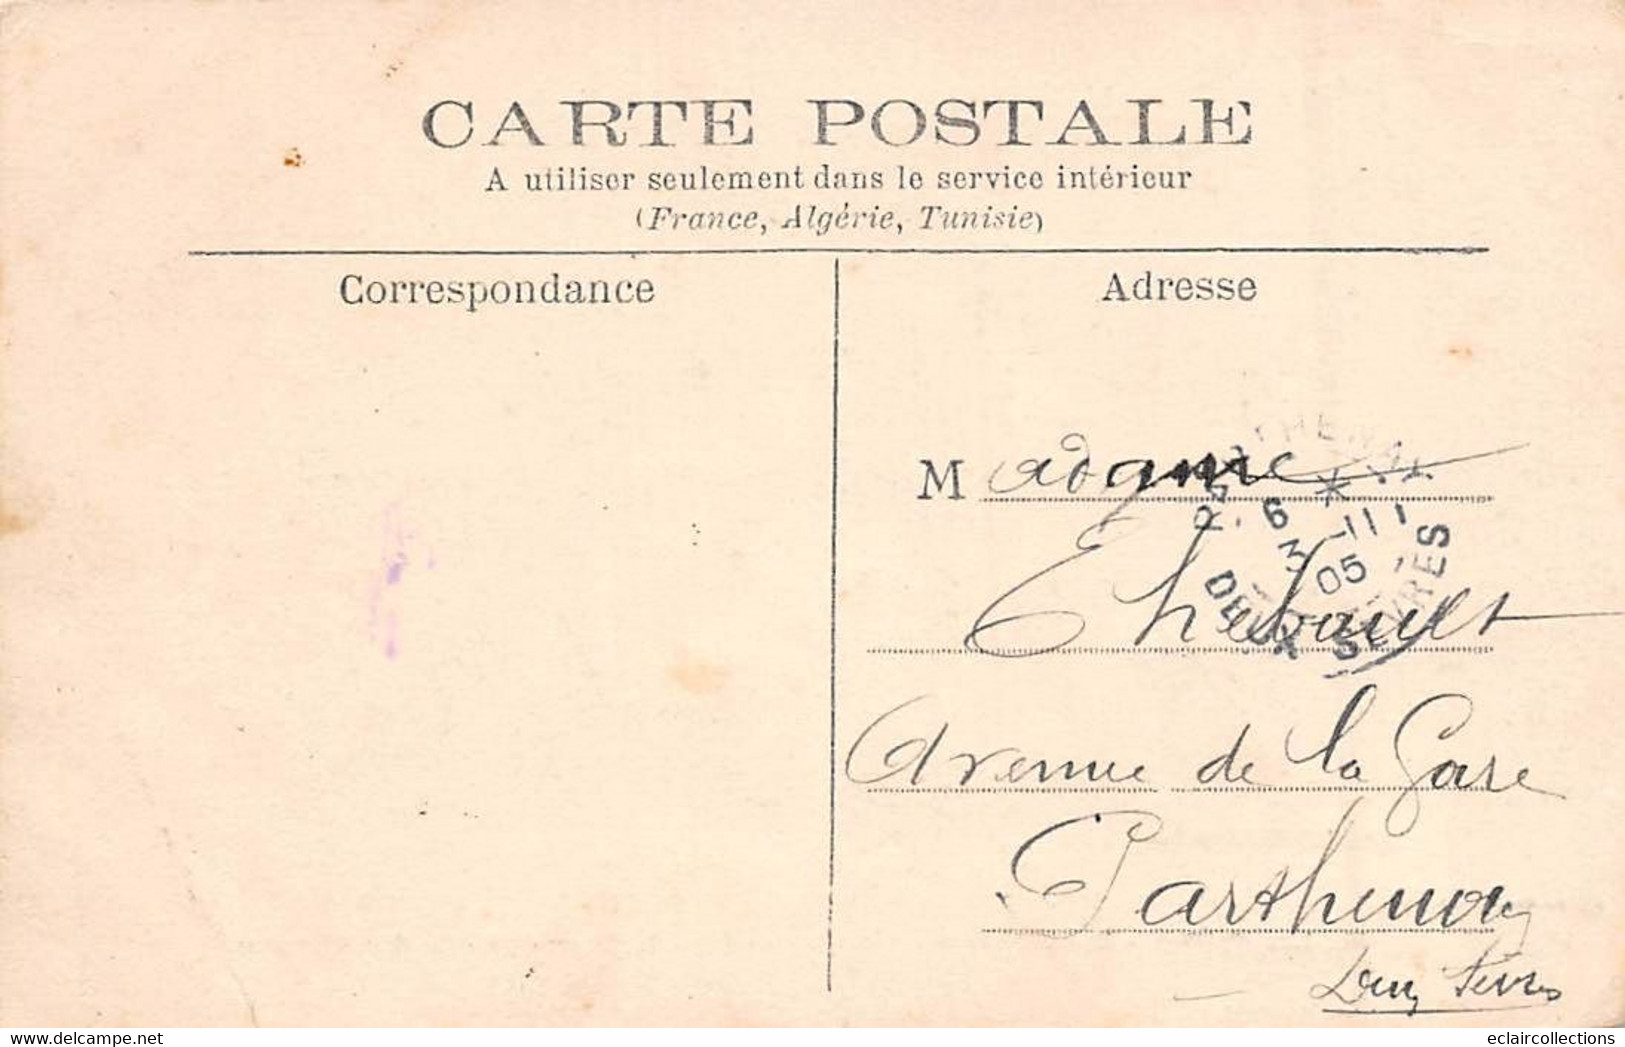 CARTE POSTALE
A utiliser seulement dans le service intérieur
(France, Algérie, Tunisie)
Correspondance
Adresse
Madame
Thébault
Avenue de la Gare
Parthenay
Deux Sèvres
PARTHENAY
6 * 11
3 05
DEUX SEVRES
eclaircollections